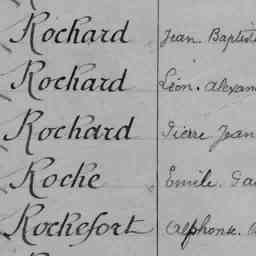 Rochard Jean. Baptist
Rochard Léon. Alexan
Rochard Pierre Jean
Roche Emile.
Rochefort Alphonse.